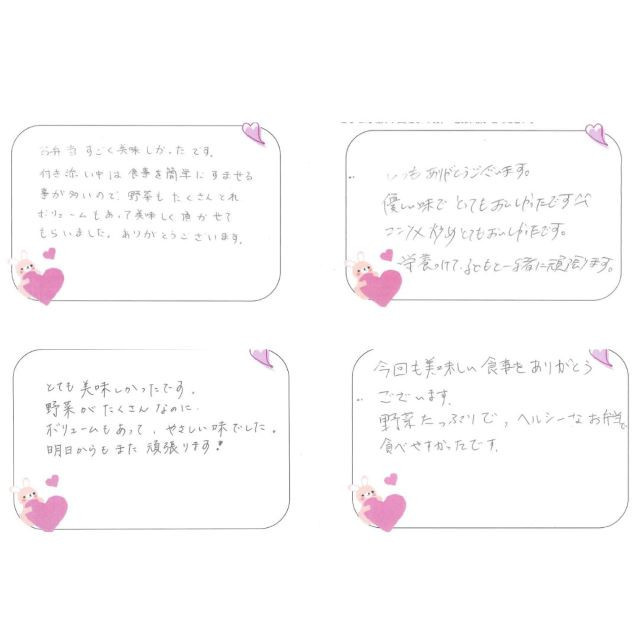 お弁当 すごく美味しかったです。
付き添い中は食事を簡単にすませる
事が多いので、野菜も たくさんとれ
ボリュームもあって美味しく頂かせて
もらいました。ありがとうございます。
いつもありがとうございます。
優しい味で とてもおいしかったです
コンソメ炒めとてもおいしかったです。
栄養つけて、子どもと一緒に頑張ります。
とても 美味しかったです。
野菜がたくさんなのに、
ボリュームもあって、やさしい味でした。
明日からもまた 頑張ります!
今回も美味しい食事をありがとう
ございます。
野菜たっぷりで、ヘルシーなお弁当で、
食べやすかったです。